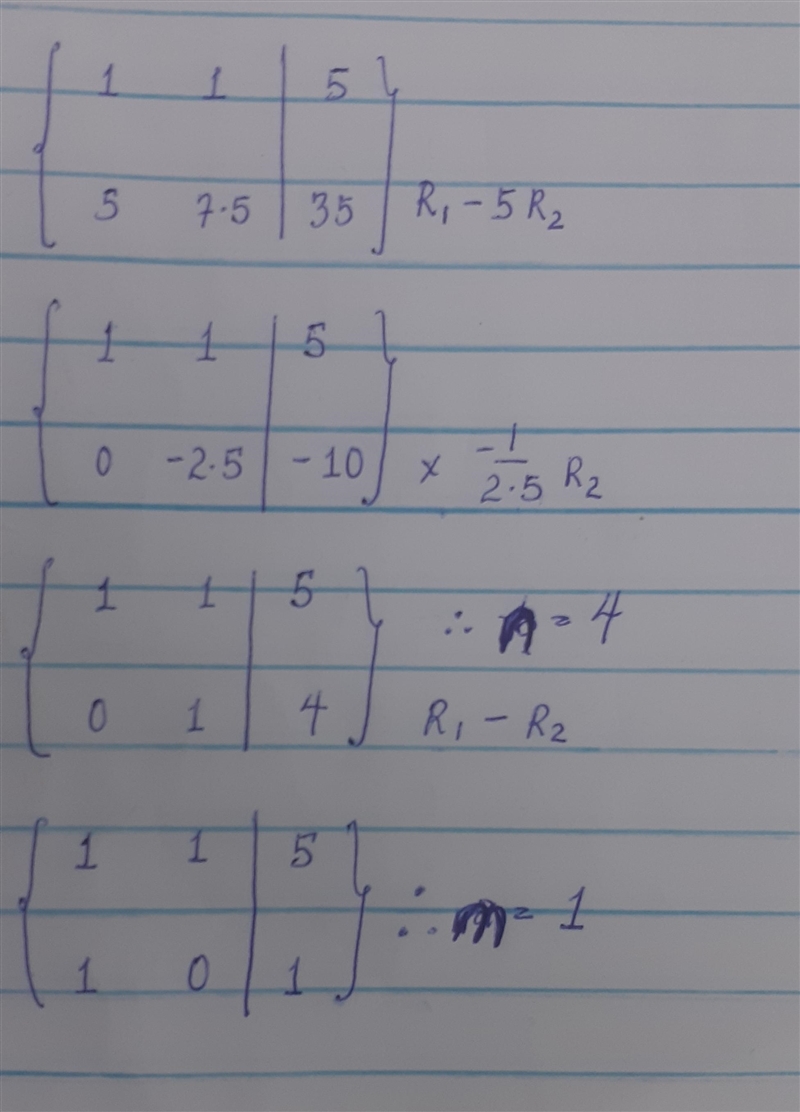 1 1 | 5
5 7.5 | 35 R₁ - 5R₂
1 1 | 5
0 -2.5 | -10 × -1/2.5 R₂
1 1 | 5 ∴ n = 4
0 1 | 4 R₁ - R₂
1 1 | 5
1 0 | 1 ∴ m = 1